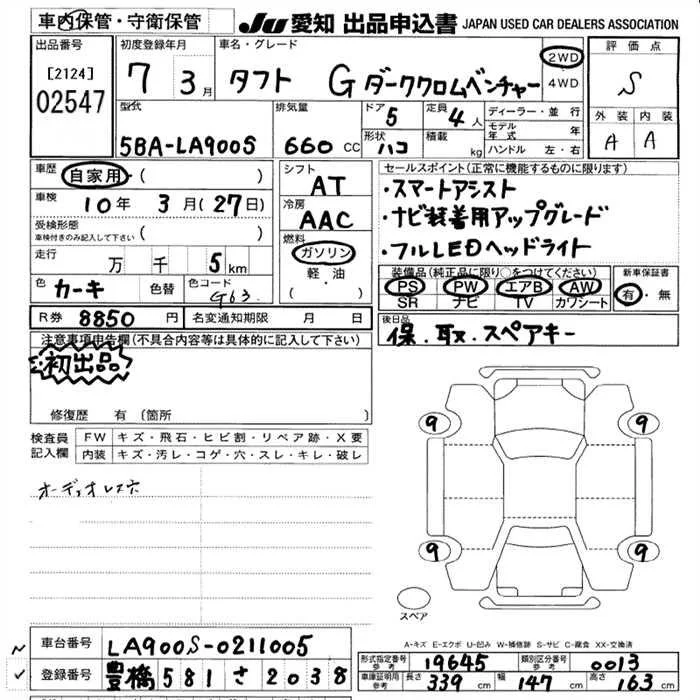 車内保管・守衛保管
JU 愛知 出品申込書 JAPAN USED CAR DEALERS ASSOCIATION
出品番号 初度登録年月 車名・グレード 評価点
[2124] 7 3月 タフト G ダーククロムベンチャー 2WD 4WD S
02547 型式 排気量 ドア 5 定員 4人 ディーラー・並行 外装 内装
5BA-LA900S 660 CC 形状 ハコ 積載 kg モデル年式 年 A A
ハンドル 左・右
車歴 自家用・( ) シフト AT セールスポイント(正常に機能するものに限ります)
車検 10年 3月(27日) 冷房 AAC ・スマートアシスト
受検形態 車検付きのみ記入して下さい ( ) ・ナビ装着用アップグレード
走行 万 千 5km 燃料 ガソリン ・フルLEDヘッドライト
軽・油
・( )
色 カーキ 色替 色コード G63 装備品(純正品に限り○をつけてください) 新車保証書
PS PW エアB AW 有・無
SR ナビ TV カワシート
R券 8850円 名変通知期限 月 日 後日品
保.取.スペアキー
注意事項申告欄(不具合内容等は具体的に記入して下さい)
初出品
修復歴 有 (箇所 )
検査員記入欄 FW キズ・飛石・ヒビ割・リペア跡・X要
内装 キズ・汚レ・コゲ・穴・スレ・キレ・破レ
オーディオレス穴
9 9
9 9
スペア
A-キズ E-エクボ U-凹み W-補修跡 S-サビ C-腐食 XX-交換済
~ 車台番号 LA900S-0211005
✓ 登録番号 豊橋 581 さ 2038
形式指定番号 参考 19645 類別区分番号 参考 0013
車庫証明用 参考 長さ 339 cm 幅 147 cm 高さ 163 cm